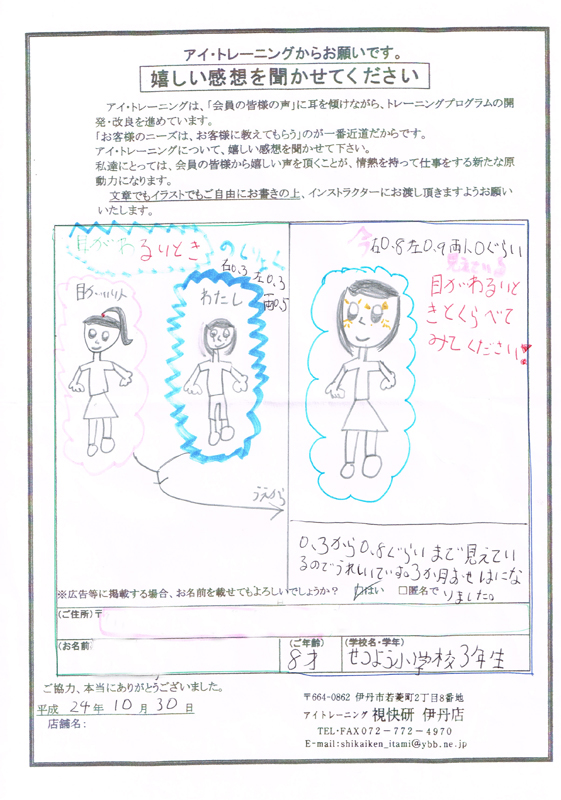 アイ・トレーニングからお願いです。
嬉しい感想を聞かせてください
アイ・トレーニングは、「会員の皆様の声」に耳を傾けながら、トレーニングプログラムの開
発・改良を進めています。
「お客様のニーズは、お客様に教えてもらう」のが一番近道だからです。
アイ・トレーニングについて、嬉しい感想を聞かせて下さい。
私達にとっては、会員の皆様から嬉しい声を頂くことが、情熱を持って仕事をする新たな原
動力になります。
文章でもイラストでもご自由にお書きの上、インストラクターにお渡し頂きますようお願い
いたします。
目がわるいとき
右0.3 左0.3
両0.5
目がいい人
わたし
うえから
今右0.8左0.9両1.0ぐらい
見えている
目がわるいと
きとくらべて
みてください!
0.3から0.8ぐらいまで見えてい
るのでうれしいです。
※広告等に掲載する場合、お名前を載せてもよろしいでしょうか? はい □匿名で
(ご住所)〒
(お名前
(ご年齢)
8才
(学校名・学年)
せつよう小学校3年生
ご協力、本当にありがとうございました。
平成 24年 10月 30日
店舗名:
〒664-0862 伊丹市若菱町2丁目8番地
アイトレーニング 視快研 伊丹店
TEL・FAX072-772-4970
E-mail:shikaiken_itami@ybb.ne.jp